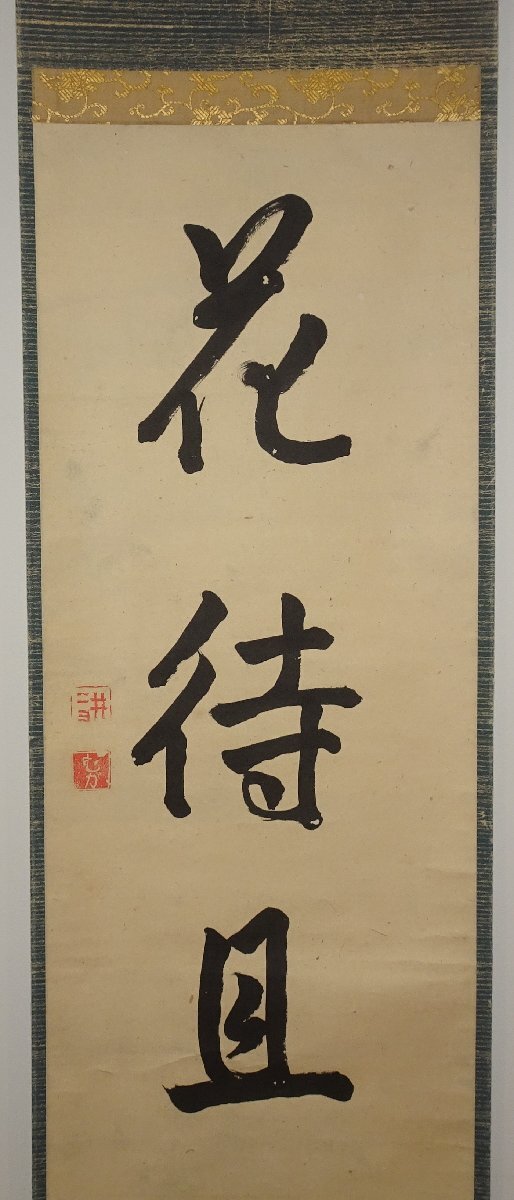 花待且